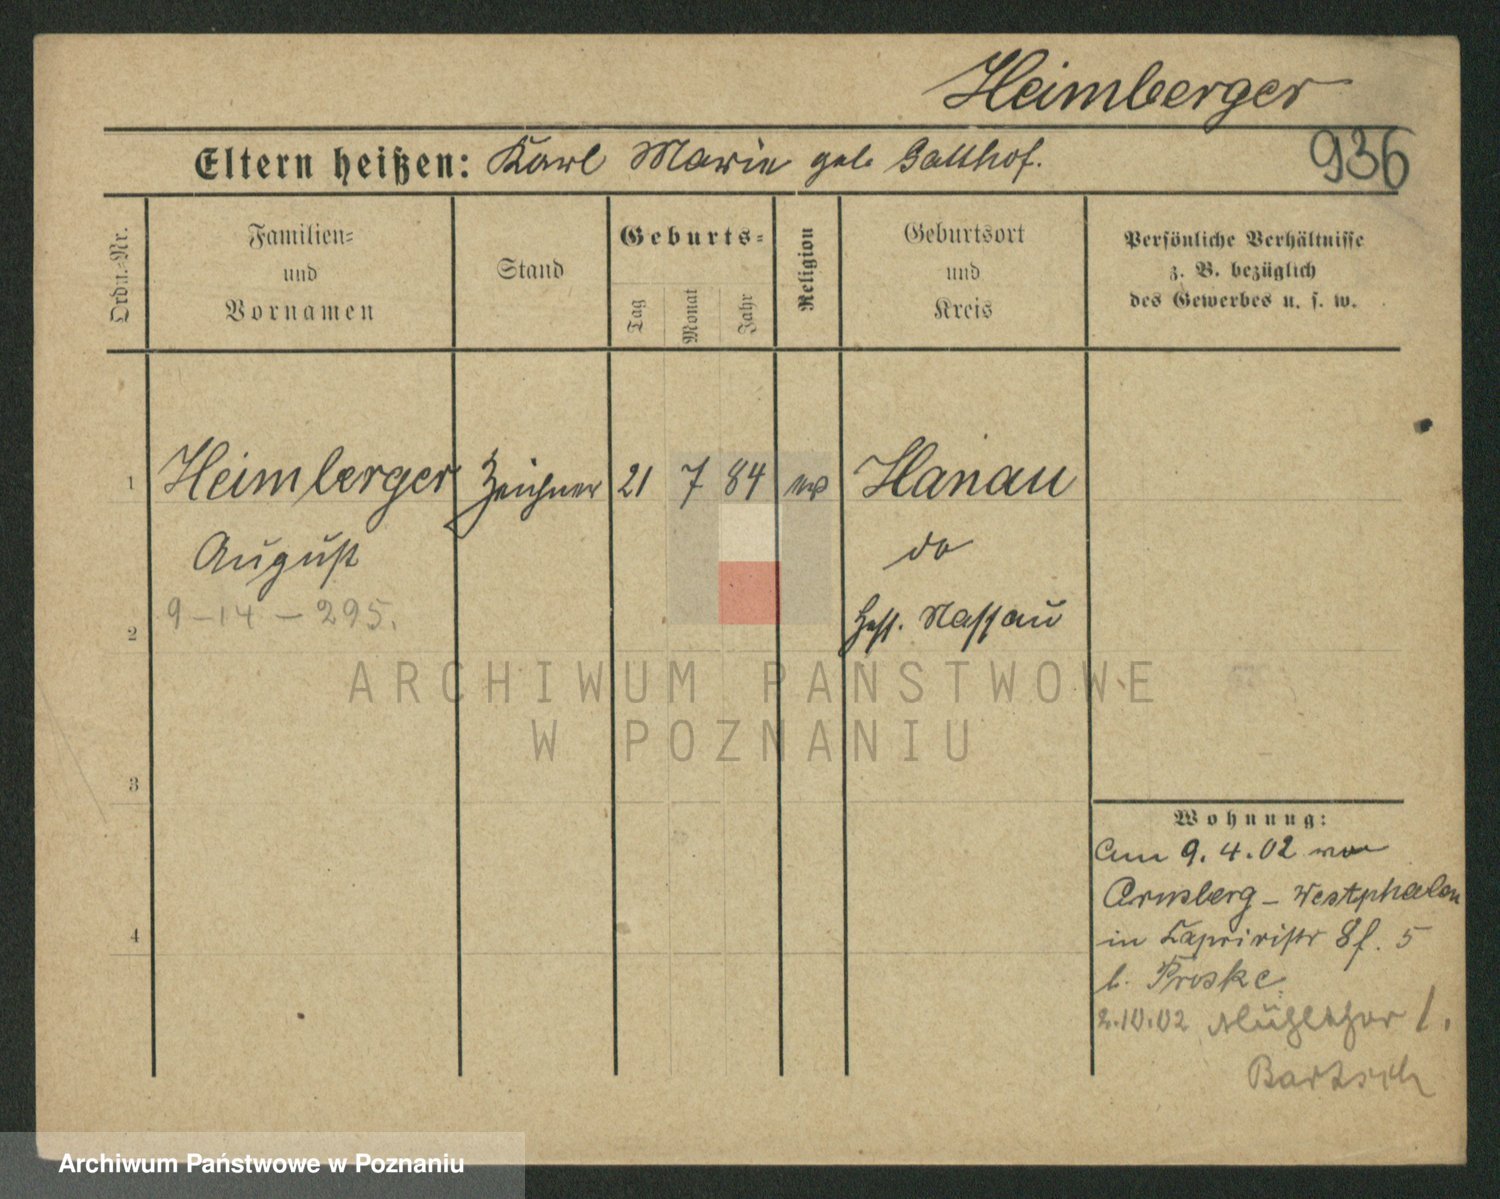 Heimberger
936
Eltern heißen: Karl Marie geb. Balthof.
Ordn.-Nr.
Familien-
und
Vornamen
Stand
Geburts-
Tag
Monat
Jahr
Religion
Geburtsort
und
Kreis
Persönliche Verhältnisse
z. B. bezüglich
des Gewerbes u. s. w.
1
Heimberger Zeichner 21 7 84 ev Hanau
August
do
9-14-295.
Hess. Nassau
2
ARCHIWUM PAŃSTWOWE
W POZNANIU
3
Wohnung:
Am 9.4.02 von
Arnsberg - Westphalen
in Caprivistr 8f. 5
4
b. Proske
2.10.02 Mühlthor 1.
Bartsch
Archiwum Państwowe w Poznaniu